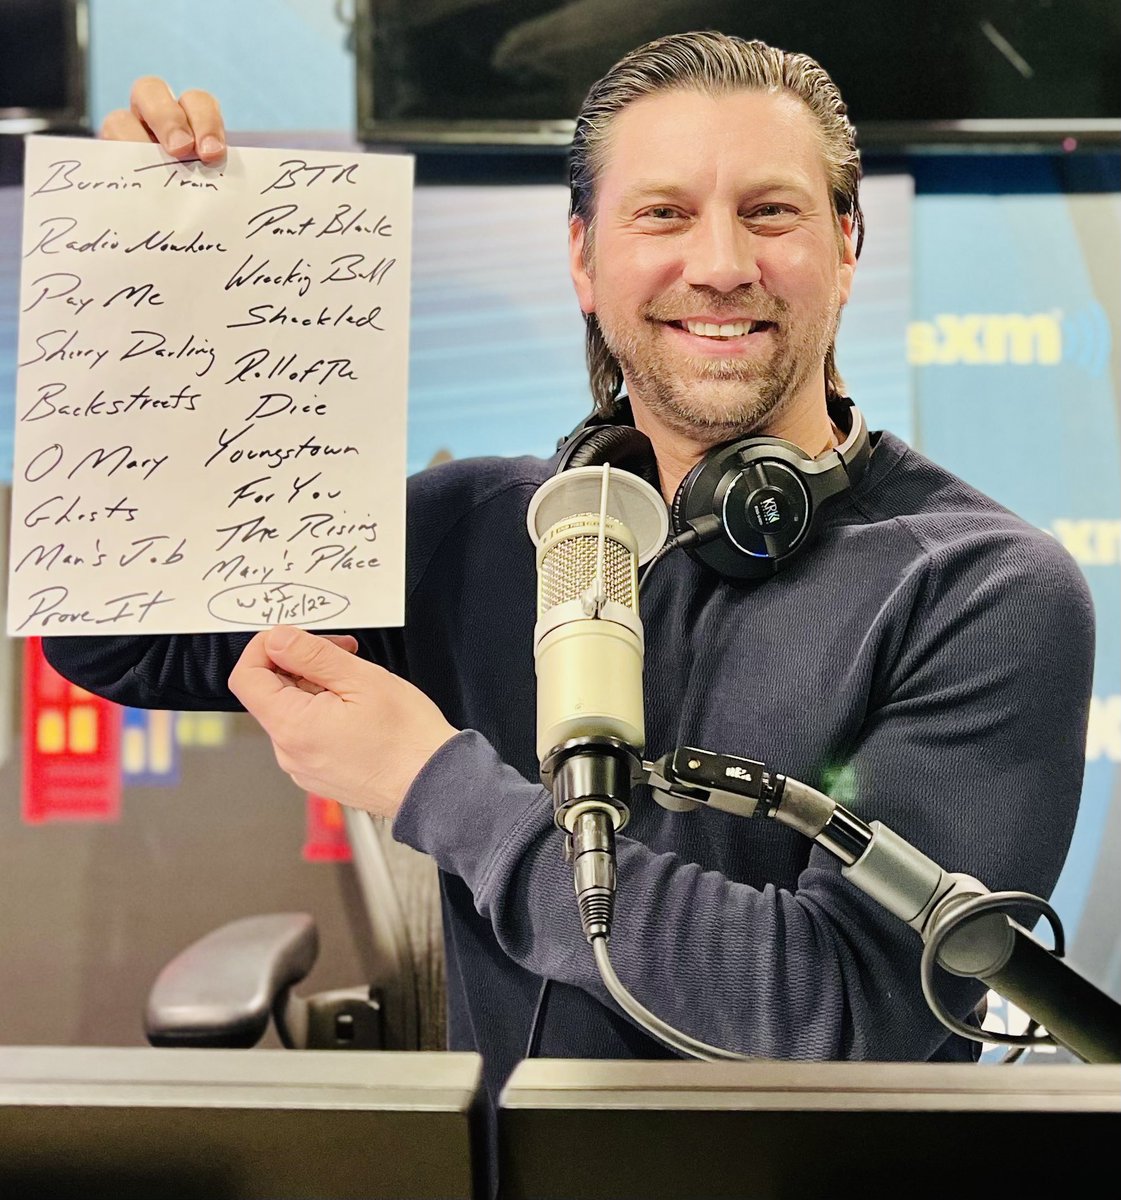 Burnin Train
Radio Nowhere
Pay Me
Sherry Darling
Backstreets
O Mary
Ghosts
Man's Job
Prove It
BTR
Point Blank
Wrecking Ball
Shackled
Roll of The
Dice
Youngstown
For You
The Rising
Mary's Place
4/15/22
sxm
KRK